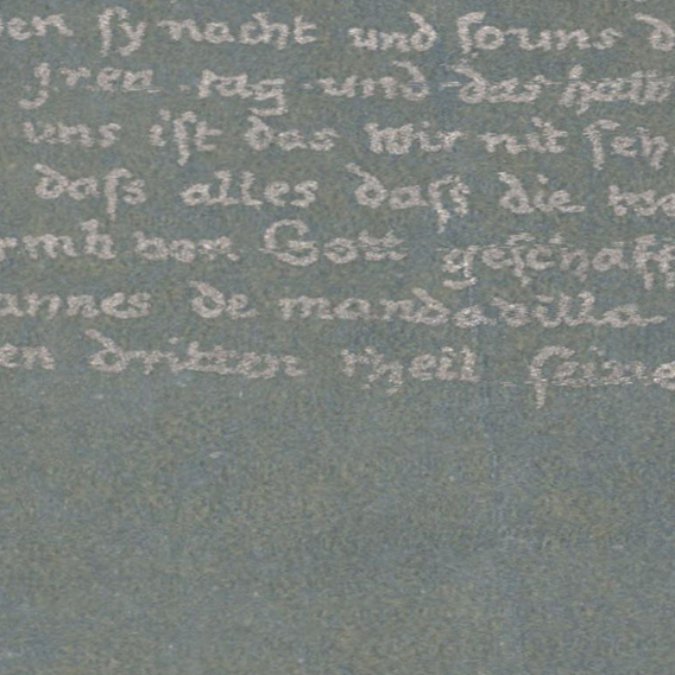 sy nacht und so uns
jren tag und das halb
uns ist das wir nit
dass alles dass die
von Gott geschaff
annes de mandavilla
en dritten theil seine